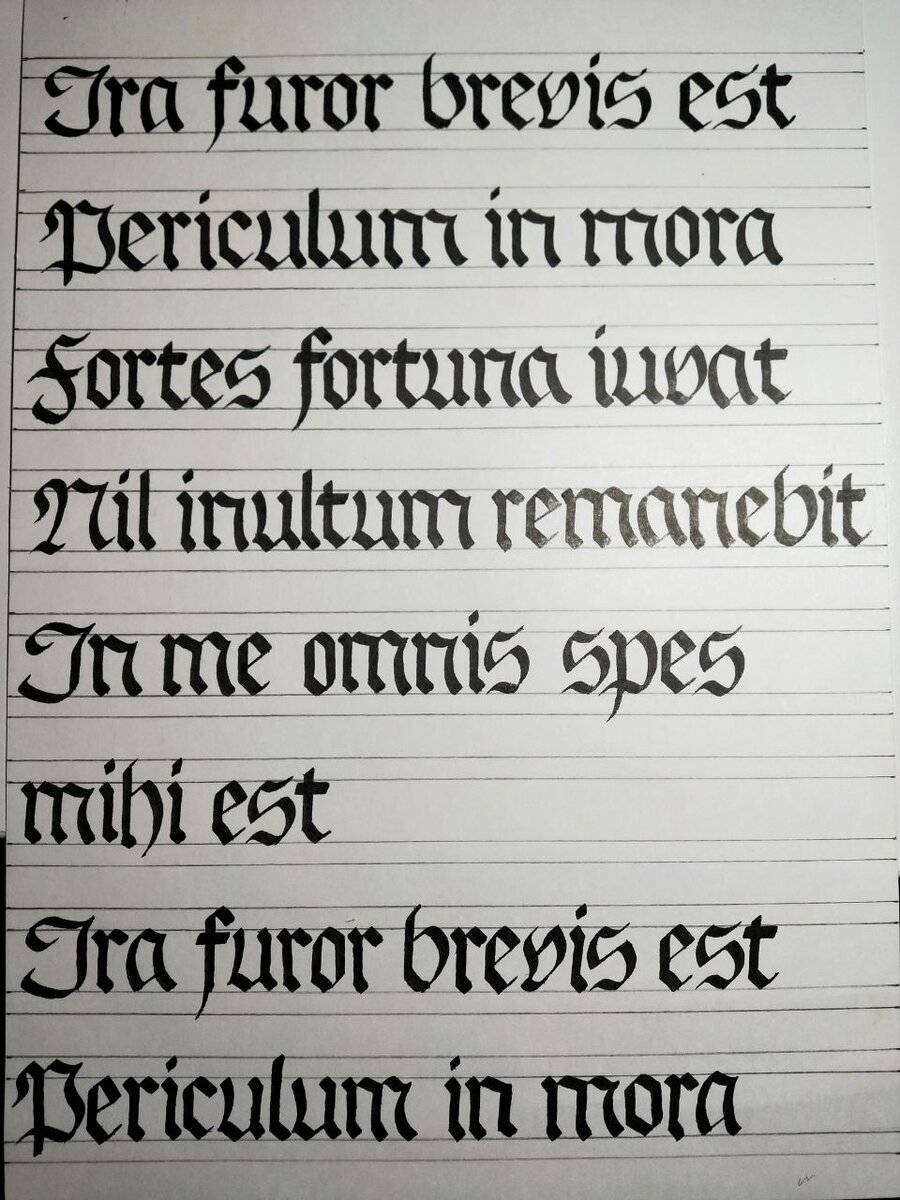 Ira furor brevis est
Periculum in mora
Fortes fortuna iuvat
Nil inultum remanebit
In me omnis spes
mihi est
Ira furor brevis est
Periculum in mora